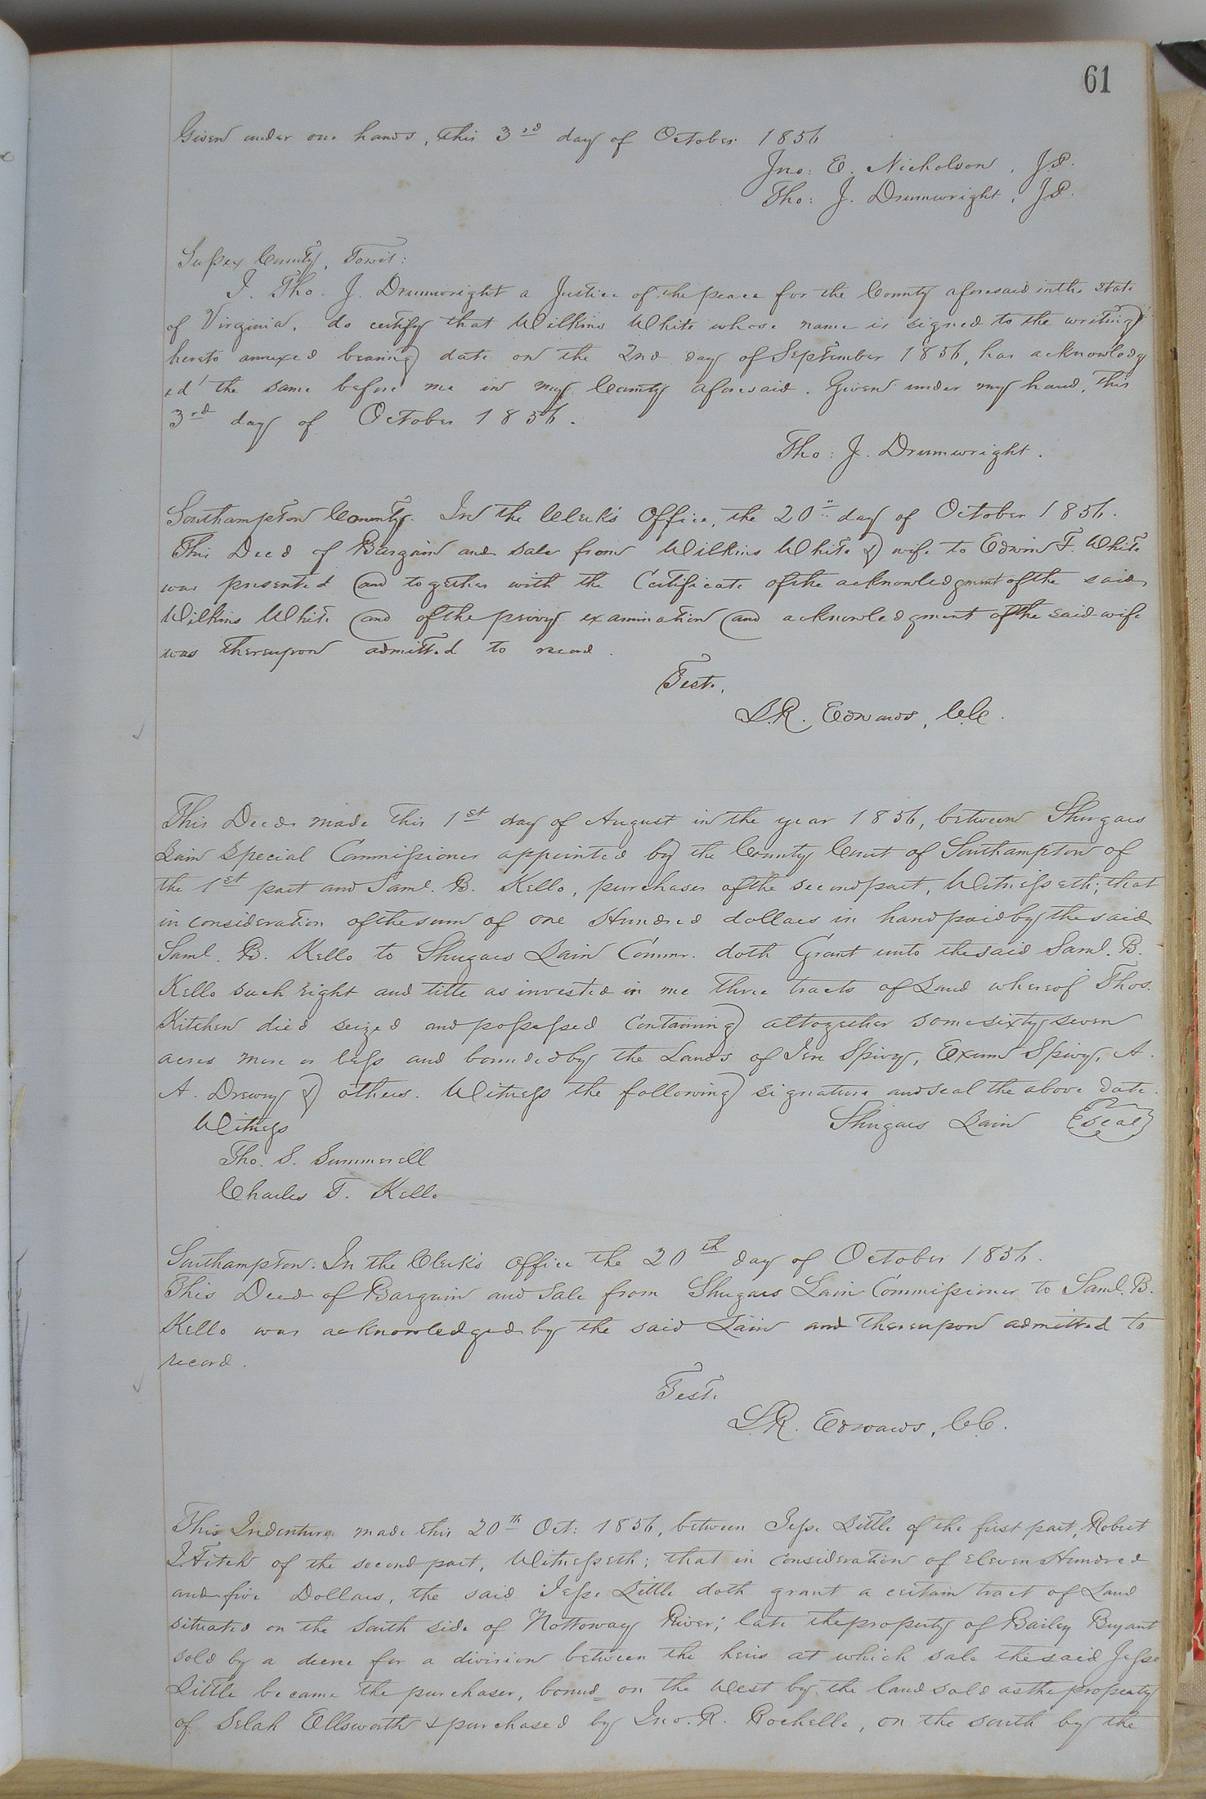 61
Given under our hands, this 3rd day of October 1856
Jno: E. Nicholson, JP.
Tho: J. Drumwright, JP.
Sussex County, Towit:
I. Tho. J. Drumwright a Justice of the peace for the County aforesaid in the State
of Virginia, do certify that Wilkins White whose name is signed to the writing
hereto annexed bearing date on the 2nd day of September 1856, has acknowledg
ed the same before me in my County aforesaid. Given under my hand, this
3rd day of October 1856.
Tho: J. Drumwright.
Southampton County. In the Clerk's Office, the 20" day of October 1856.
This Deed of Bargain and sale from Wilkins White & wife to Edwin F. White
was presented and together with the Certificate of the acknowledgment of the said
Wilkins White and of the privy examination and acknowledgment of the said wife
was thereupon admitted to record.
Test.
L.R. Edwards, C.C.
This Deed made this 1st day of August in the year 1856, between Shugars
Lain Special Commissioner appointed by the County Court of Southampton of
the 1st part and Saml. B. Kello, purchaser of the second part, Witnesseth; that
in consideration of the sum of one Hundred dollars in hand paid by the said
Saml. B. Kello to Shugars Lain Commr. doth Grant unto the said Saml. B.
Kello such right and title as invested in me three tracts of Land whereof Thos.
Kitchen died seized and possessed Containing altogether some sixty seven
acres more or less and bounded by the Lands of Spivy, Exum Spivy, A.
A. Drewry & others. Witness the following signature and seal the above date.
Witness Shugars Lain (Seal)
Tho. S. Summerell
Charles T. Kello
Southampton. In the Clerk's office the 20th day of October 1856.
This Deed of Bargain and Sale from Shugars Lain Commissioner to Saml. B.
Kello was acknowledged by the said Lain and thereupon admitted to
record.
Test.
L.R. Edwards, C.C.
This Indenture made this 20th Oct: 1856, between Jesse Little of the first part, Robert
of the second part, Witnesseth; that in consideration of eleven Hundred
and five Dollars, the said Jesse Little doth grant a certain tract of Land
situated on the South side of Nottoway River; late the property of Bailey Bryant
sold by a decree for a division between the heirs at which sale the said Jesse
Little became the purchaser, bound on the West by the land sold as the property
of Selah Ellsworth & purchased by Jno. R. Rochelle, on the south by the